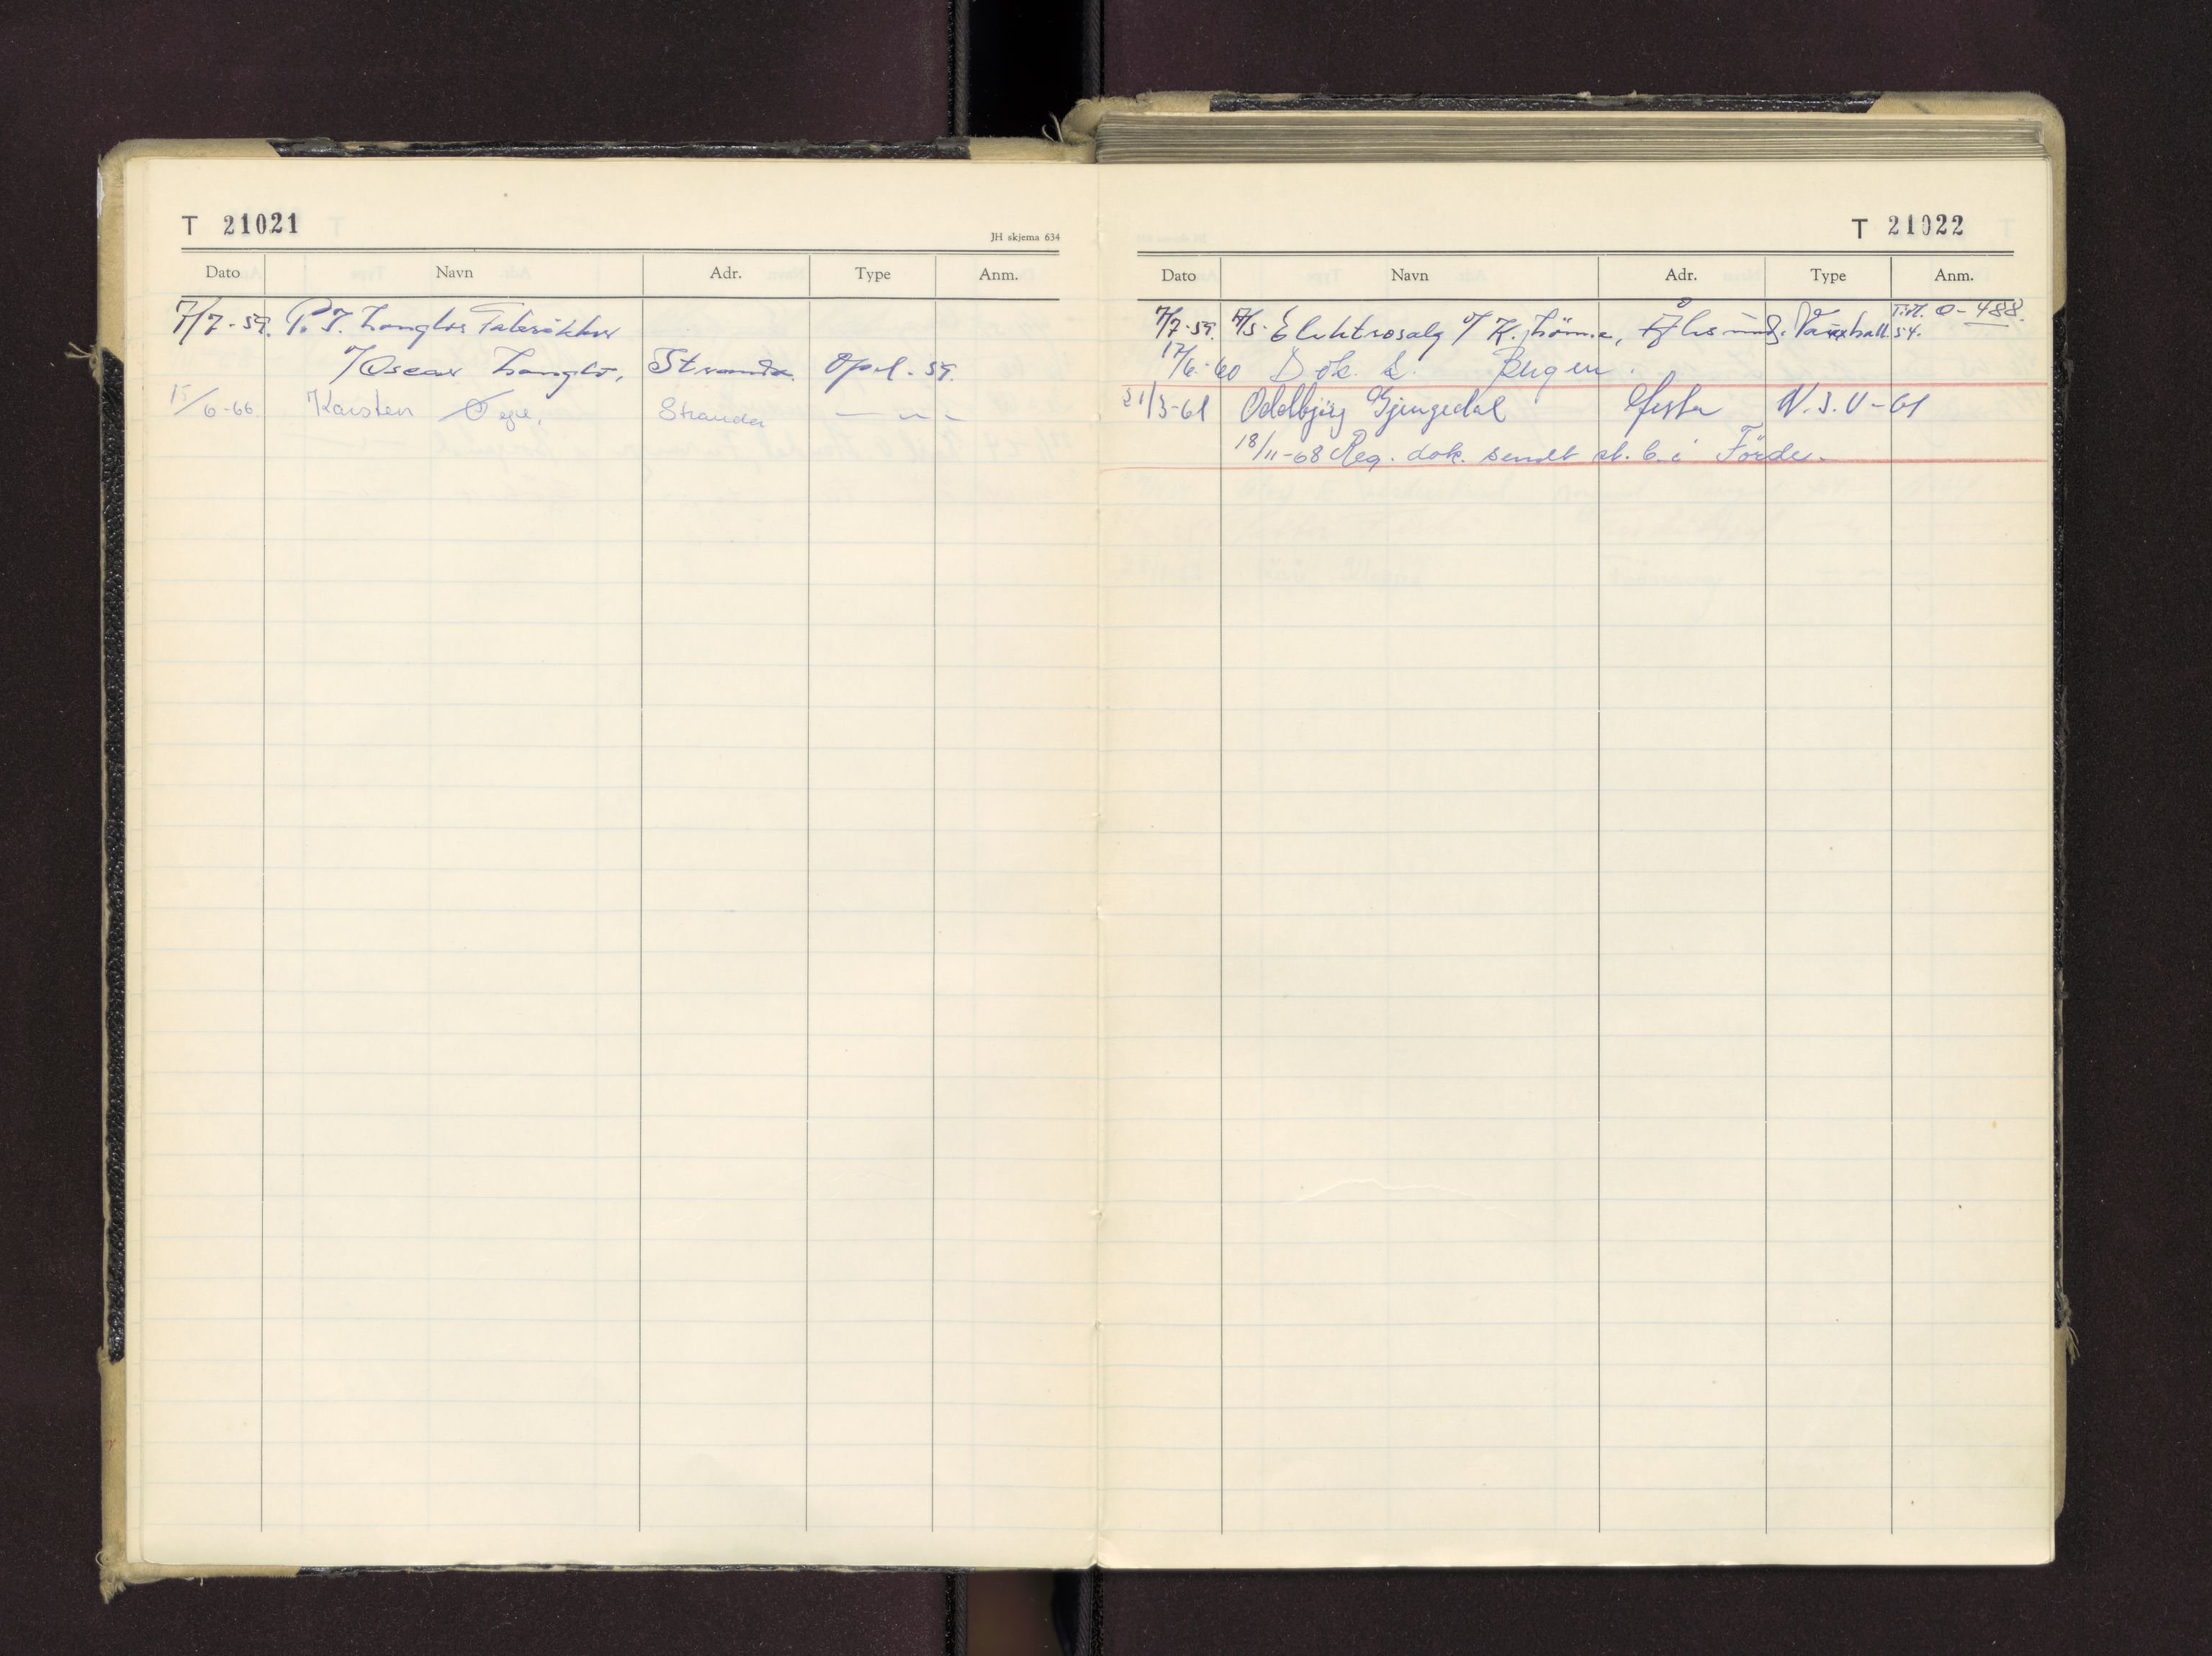 T 21021
JH skjema 634
Dato Navn Adr. Type Anm.
7/7-59. P. I. Langlos
v/Oscar Langlo, Stranda. Opel. 59.
15/6-66. Karsten Øye, Stranda — „ —
T 21022
Dato Navn Adr. Type Anm.
7/7-59. A/S. Elektrosalg v/ K. Ålesund. Vauxhall. 54. Tidl. O-488.
17/6-60 Dok. s. Bergen.
21/3-61 Oddbjørg Gjengedal N.S.U-61
18/11-68 Reg. dok. sendt st. b. i Förde.